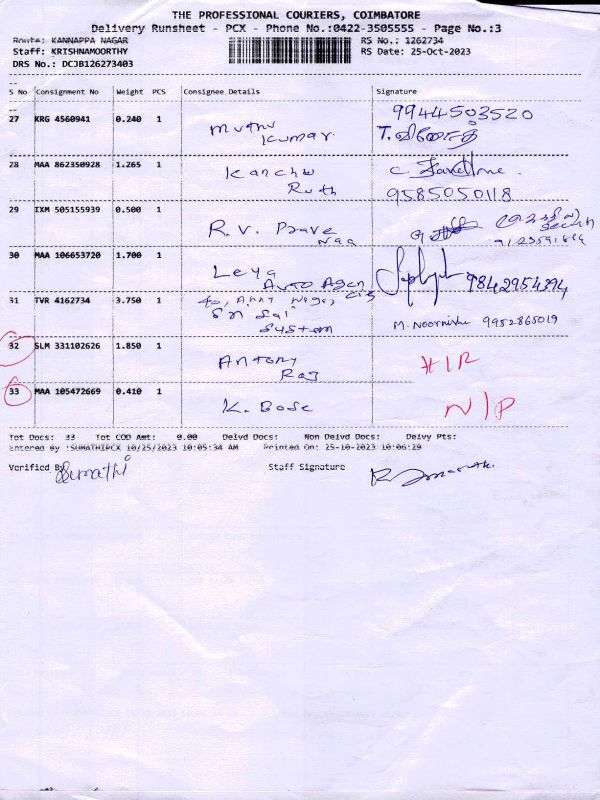 THE PROFESSIONAL COURIERS, COIMBATORE
Delivery Runsheet - PCX - Phone No.:0422-3505555 - Page No.:3
Route: KANNAPPA NAGAR RS No.: 1262734
Staff: KRISHNAMOORTHY RS Date: 25-Oct-2023
DRS No.: DCJB126273403
S No Consignment No Weight PCS Consignee Details Signature
27 KRG 4560941 0.240 1 Muthu 9944503520
Kumar T. வினோத்
28 MAA 862350928 1.265 1 Kanchu
Ruth 9585050118
29 IXM 505155939 0.500 1 R.V. Prave
Naa
30 MAA 106653720 1.700 1 Leya
Auto Agen 9842954394
31 TVR 4162734 3.750 1
Sri Sai
System M. Noornisha 9952865019
32 SLM 331102626 1.850 1 Antony H/R
Raj
33 MAA 105472669 0.410 1 K. Bose N/P
Tot Docs: 33 Tot COD Amt: 0.00 Delvd Docs: Non Delvd Docs: Delvy Pts:
Entered By :SUMATHIPCX 10/25/2023 10:05:34 AM Printed On: 25-10-2023 10:06:29
Verified By Sumathi Staff Signature